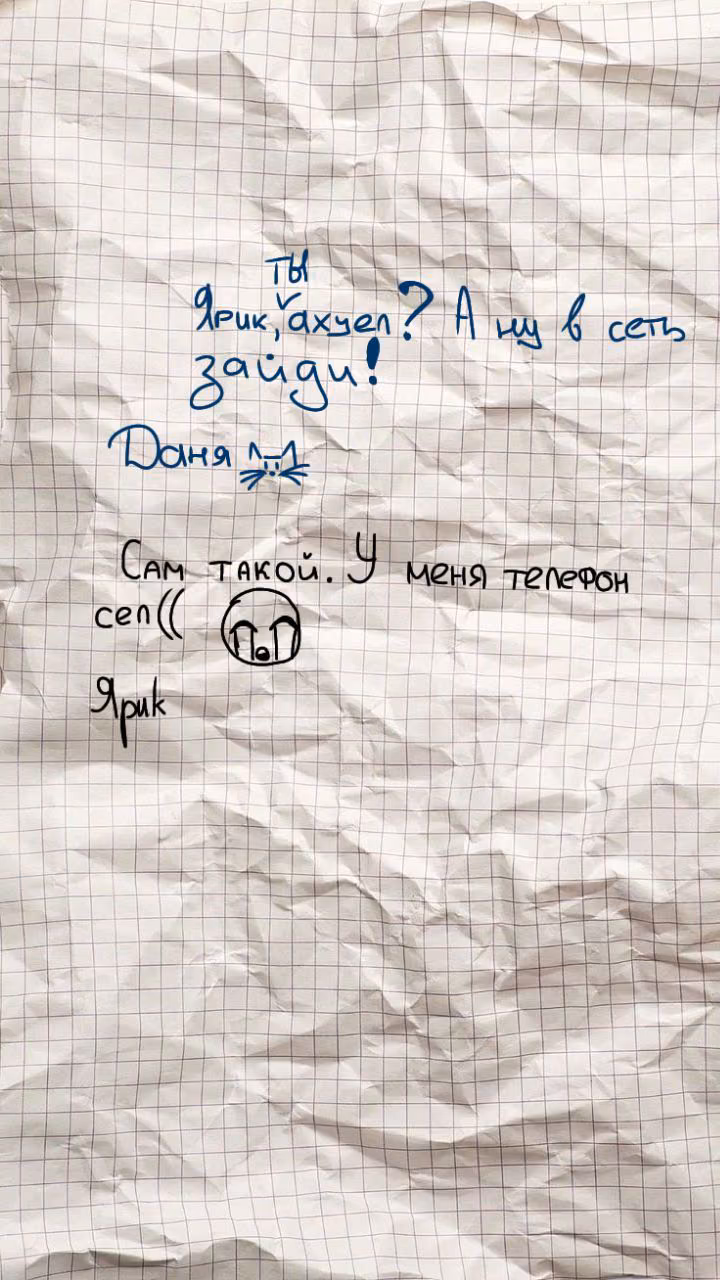 ты
Ярик, ахуел? А ну в сеть
зайди!
Даня
Сам такой. У меня телефон
сел((
Ярик